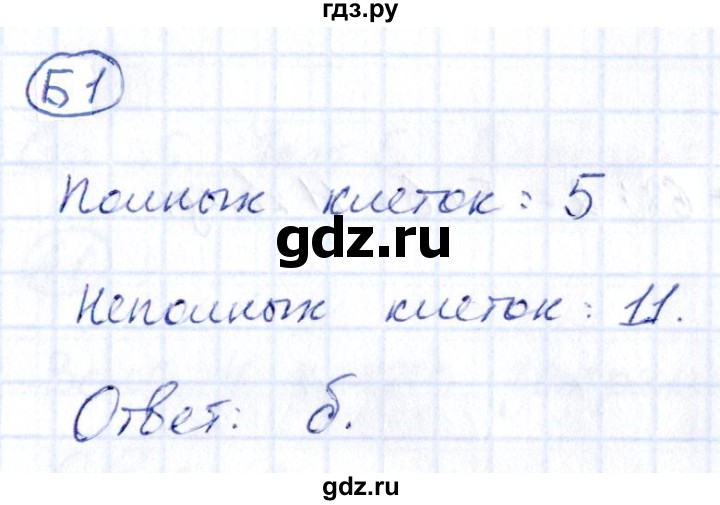 гдз.ру
Б1
Полных клеток: 5
gdz.ru
Неполных клеток: 11.
Ответ: б.
gdz.ru